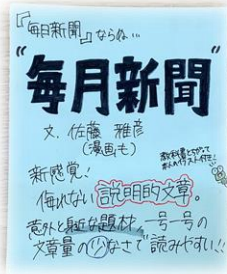 『毎日新聞』ならぬ…
"毎月新聞"
文.佐藤 雅彦
(漫画も)
教科書とちがって
本人のイラスト付き!
新感覚!
侮れない説明的文章。
意外と身近な題材、一号一号の
文章量の少なさで読みやすい!!